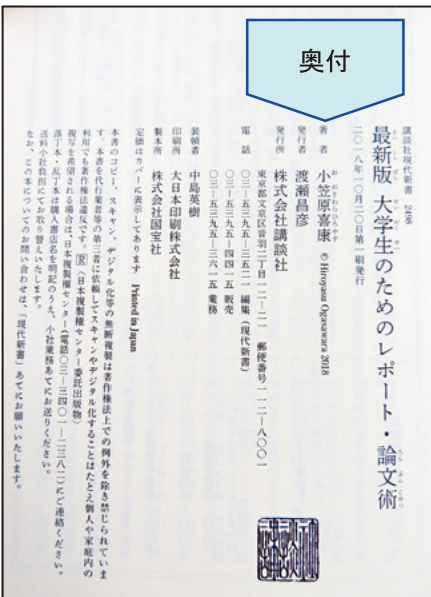 奥付
講談社現代新書 2498
最新版 大学生のためのレポート・論文術
二〇一八年一〇月二〇日第一刷発行
著者 小笠原喜康 © Hiroyasu Ogasawara 2018
発行者 渡瀬昌彦
発行所 株式会社講談社
東京都文京区音羽二丁目一二―二一 郵便番号一一二―八〇〇一
電話 〇三―五三九五―三五二一 編集(現代新書)
〇三―五三九五―四四一五 販売
〇三―五三九五―三六一五 業務
装幀者 中島英樹
印刷所 大日本印刷株式会社
製本所 株式会社国宝社
定価はカバーに表示してあります Printed in Japan
本書のコピー、スキャン、デジタル化等の無断複製は著作権法上での例外を除き禁じられていま
す。本書を代行業者等の第三者に依頼してスキャンやデジタル化することはたとえ個人や家庭内の
利用でも著作権法違反です。Ⓡ〈日本複製権センター委託出版物〉
複写を希望される場合は、日本複製権センター(電話〇三―三四〇一―二三八二)にご連絡ください。
落丁本・乱丁本は購入書店名を明記のうえ、小社業務あてにお送りください。
送料小社負担にてお取り替えいたします。
なお、この本についてのお問い合わせは、「現代新書」あてにお願いいたします。